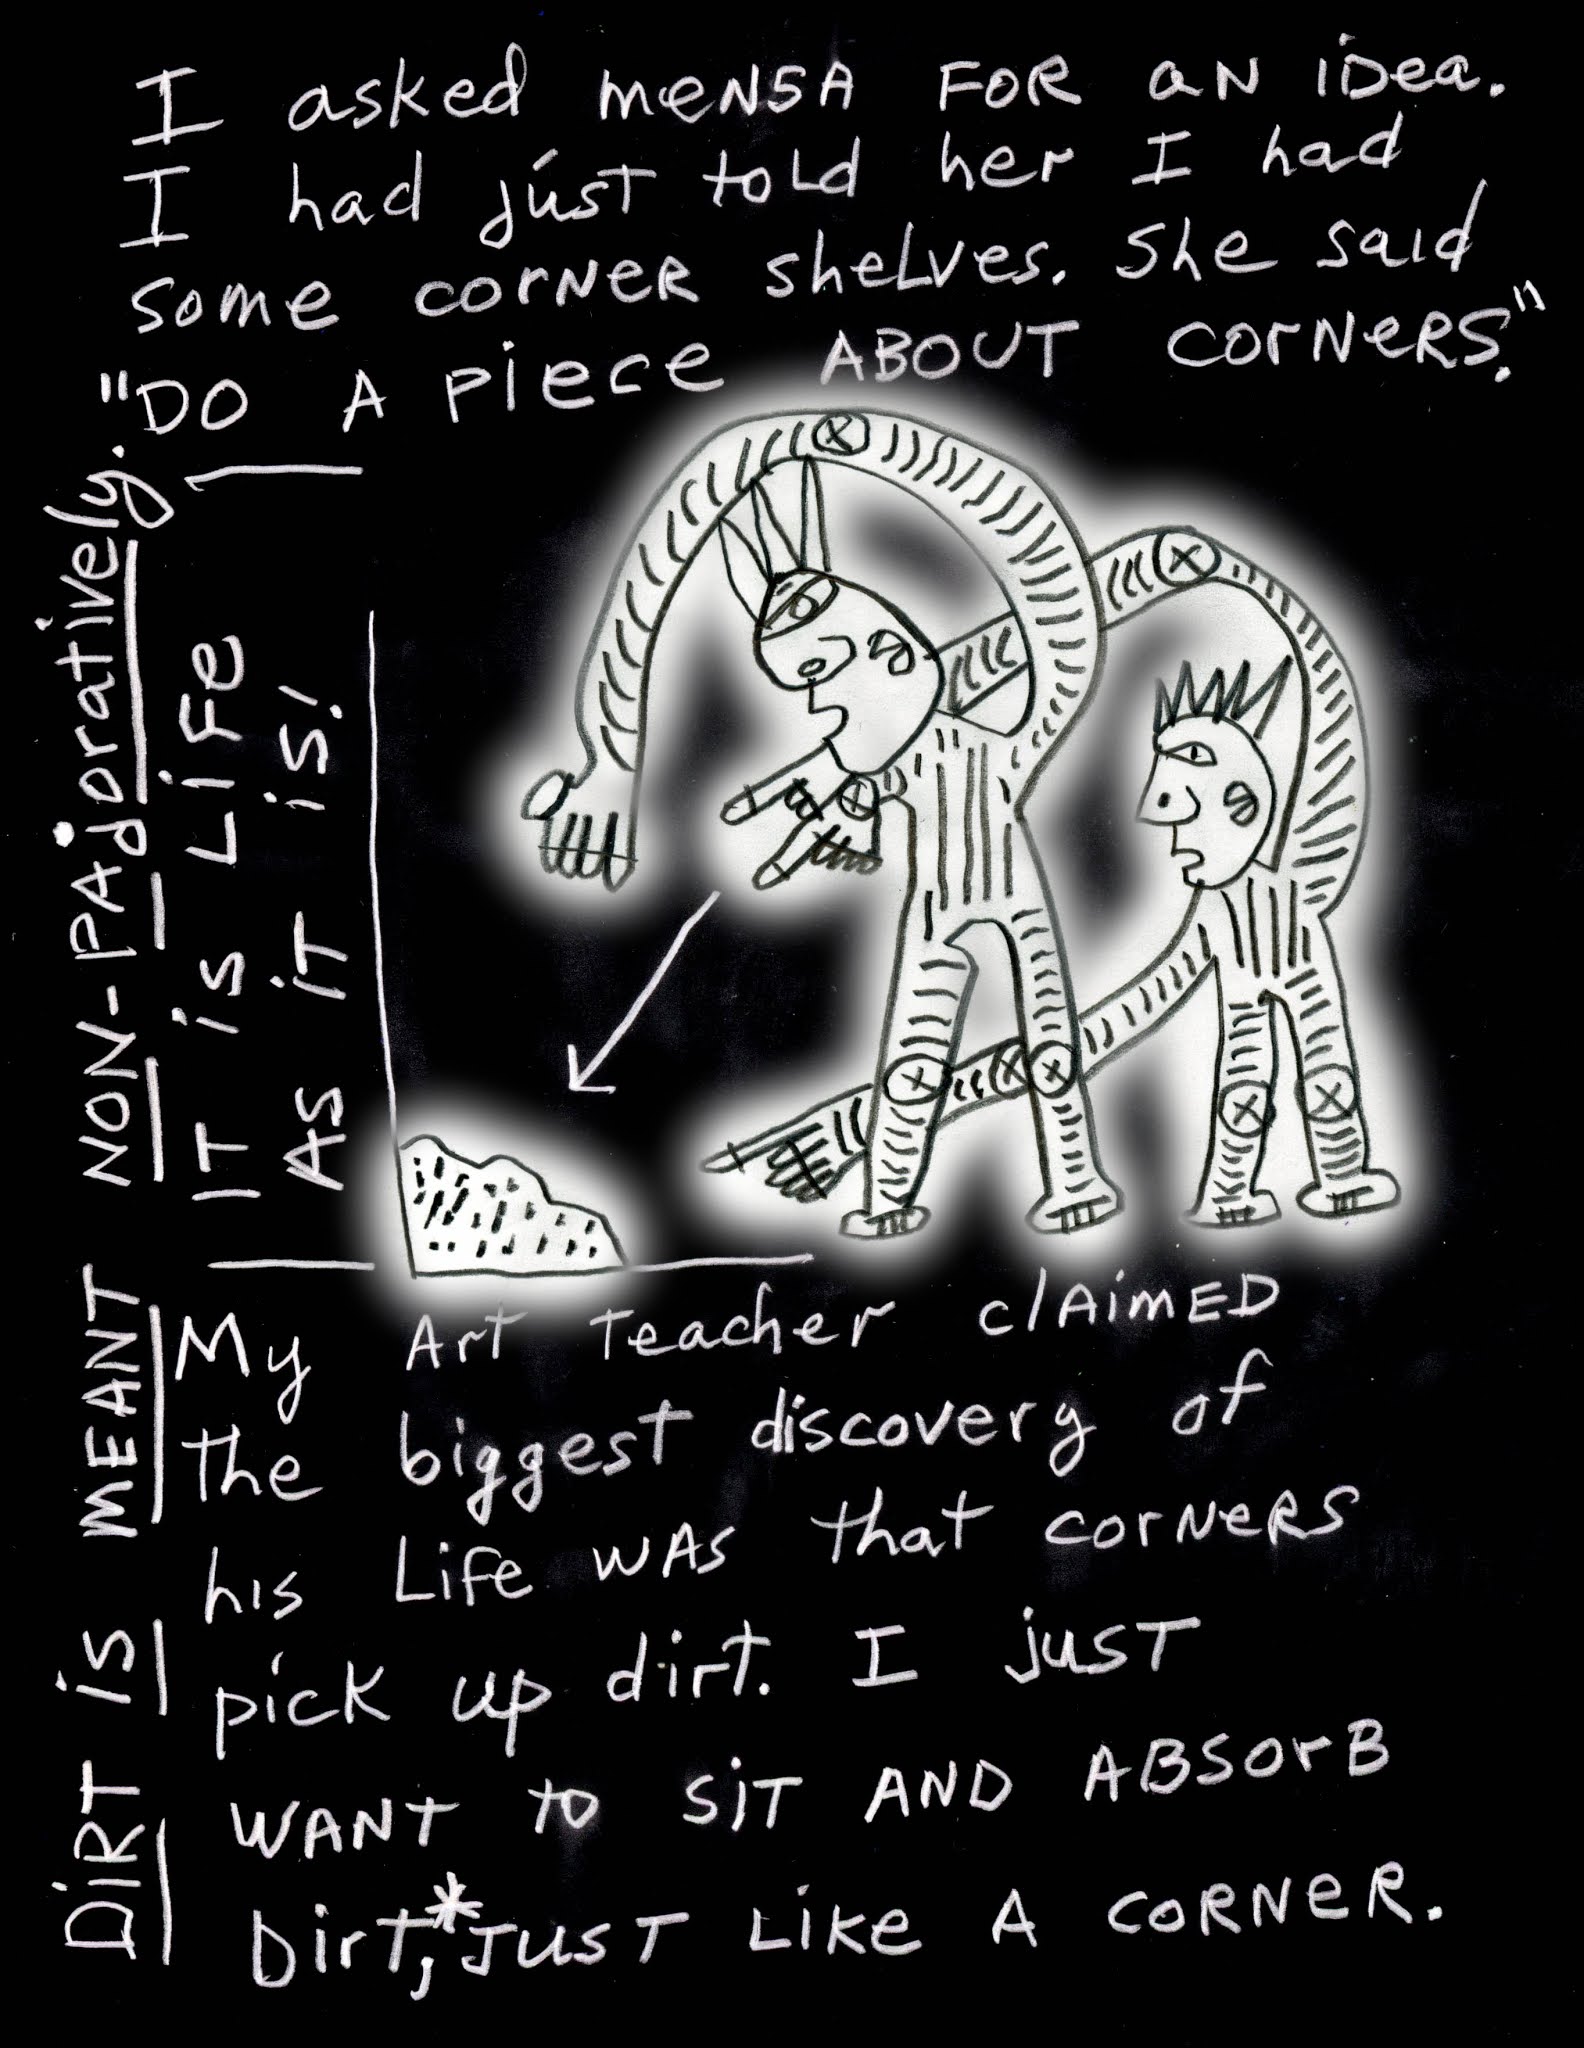 I asked MENSA FOR AN iDea.
I had just told her I had
some corNER shelves. She said
"DO A Piece ABOUT CORNERS."
My Art Teacher clAimED
the biggest discovery of
his Life WAS that CORNERS
pick up dirt. I just
WANT to SiT AND ABSOrB
Dirt,* JUST LiKe A CORNER.
DiRT is MEANT NON-PAjoratively.
IT is LiFe
AS iT is!